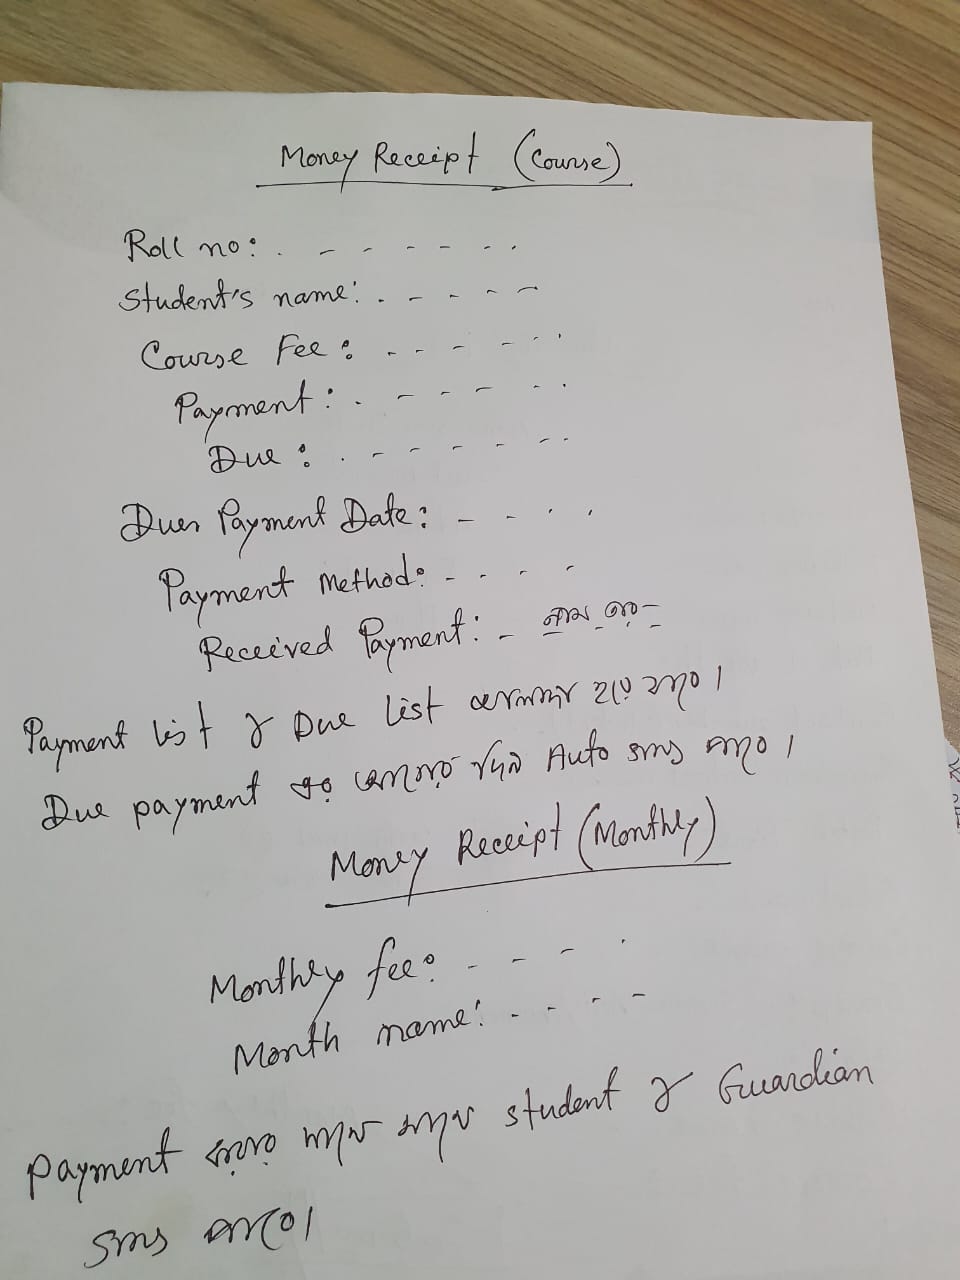 Money Receipt (Course)
Roll no: . - - - - - .
Student's name: . - - - -
Course Fee : - - - - - .
Payment : . - - - - .
Due : . - - - - - .
Dues Payment Date : - - . .
Payment Method : - - - -
Received Payment : - নাম
Payment list ও Due list আলাদা হতে হবে।
Due payment এর দিন Auto sms যাবে।
Money Receipt (Monthly)
Monthly fee : - - - .
Month name : - - - -
Payment করার সাথে সাথে student ও Guardian
sms যাবে।